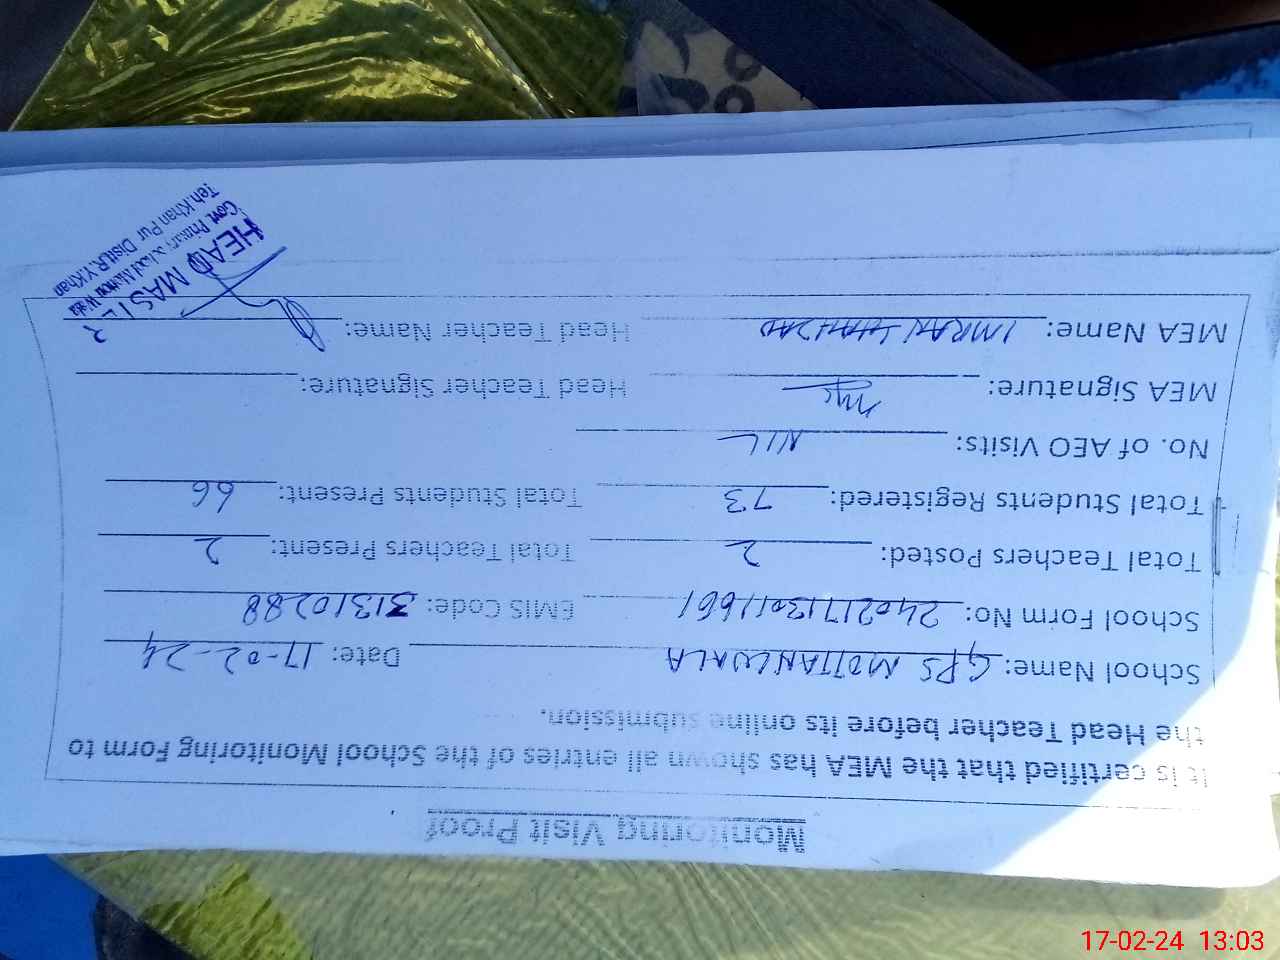 Monitoring Visit Proof
It is certified that the MEA has shown all entries of the School Monitoring Form to
the Head Teacher before its online submission.
School Name: GPS MOTTANWALA Date: 17-02-24
School Form No: 24021713011661 EMIS Code: 31310288
Total Teachers Posted: 2 Total Teachers Present: 2
Total Students Registered: 73 Total Students Present: 66
No. of AEO Visits: NIL
MEA Signature: Head Teacher Signature:
MEA Name: IMRAN SHAHZAD Head Teacher Name:
HEAD MASTER
Govt. Primary School
Teh. Khan Pur Distt. R.Y.Khan
17-02-24 13:03